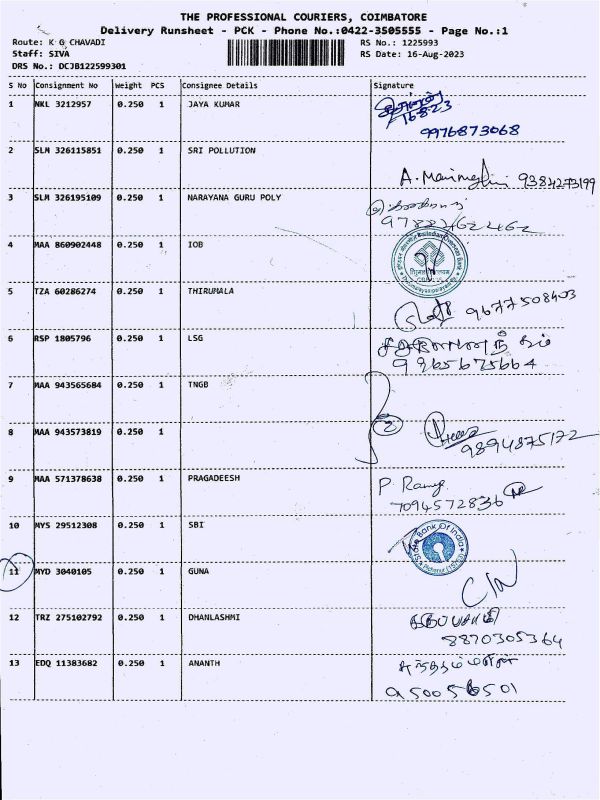 THE PROFESSIONAL COURIERS, COIMBATORE
Delivery Runsheet - PCK - Phone No.:0422-3505555 - Page No.:1
Route: K G CHAVADI
RS No.: 1225993
Staff: SIVA
RS Date: 16-Aug-2023
DRS No.: DCJB122599301
S No Consignment No Weight PCS Consignee Details Signature
1 NKL 3212957 0.250 1 JAYA KUMAR
16.8.23
9976873068
2 SLM 326115851 0.250 1 SRI POLLUTION
9384273199
3 SLM 326195109 0.250 1 NARAYANA GURU POLY
9788462462
4 MAA 860902448 0.250 1 IOB
5 TZA 60286274 0.250 1 THIRUMALA
9677508403
6 RSP 1805796 0.250 1 LSG
9965675664
7 MAA 943565684 0.250 1 TNGB
2
8 MAA 943573819 0.250 1
9894875172
9 MAA 571378638 0.250 1 PRAGADEESH
P. Ramya
7094572836
10 MYS 29512308 0.250 1 SBI
State Bank Of India
11 MYD 3040105 0.250 1 GUNA
12 TRZ 275102792 0.250 1 DHANLASHMI
கருப்பசாமி
8870305364
13 EDQ 11383682 0.250 1 ANANTH